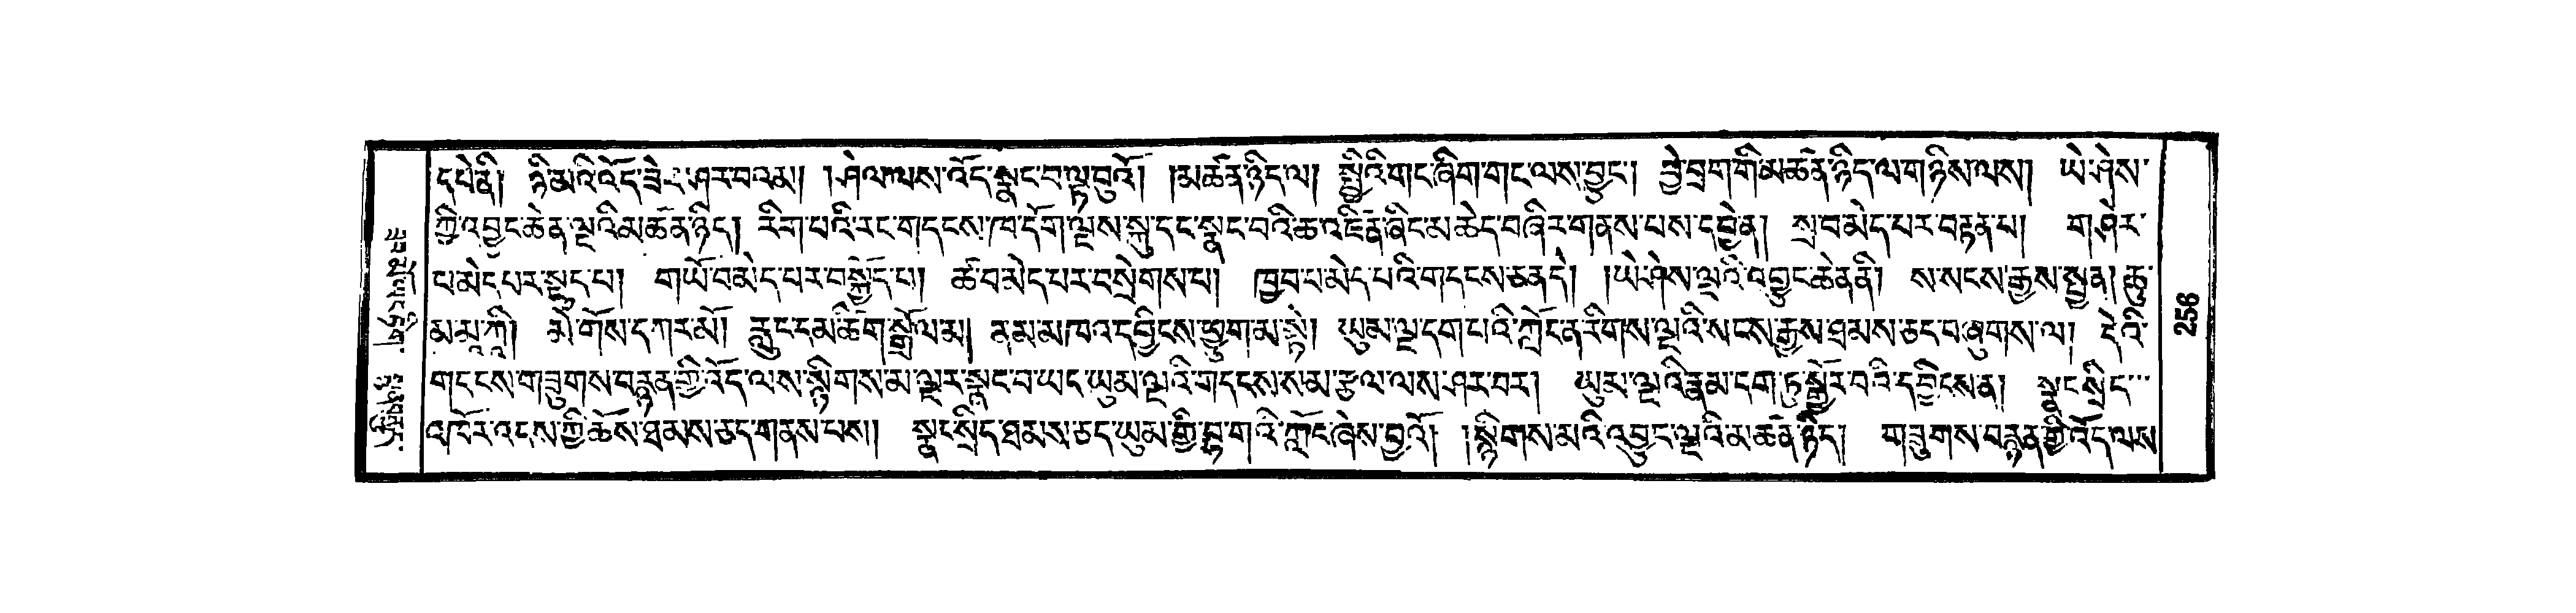 དཔེ་ནི། ཉི་མའི་འོད་ཟེར་ཤར་བའམ། །ཤེལ་ལས་འོད་སྣང་བ་ལྟ་བུའོ། །མཚན་ཉིད་ལ། སྤྱིའི་གང་ཞིག་གང་ལས་བྱུང་། བྱེ་བྲག་གི་མཚན་ཉིད་ལ་གཉིས་ལས། ཡེ་ཤེས་
ཀྱི་འབྱུང་ཆེན་ལྔའི་མཚན་ཉིད། རིག་པའི་རང་གདངས་ཁ་དོག་ལྔས་སྐུ་དང་སྣང་བའི་ཆ་འཛིན་ཞིང་མཆེད་བཞིར་གནས་པས་དབྱེན། སྲ་བ་མེད་པར་བརྟན་པ། གཤེར་
པ་མེད་པར་སྡུད་པ། གཡོ་བ་མེད་པར་བསྐྱོད་པ། ཚ་བ་མེད་པར་བསྲེགས་པ། ཁྱབ་པ་མེད་པའི་གདངས་ཅན་དེ། །ཡེ་ཤེས་ལྔའི་འབྱུང་ཆེན་ནི། ས་སངས་རྒྱས་སྤྱན། ཆུ་
མ་མཱ་ཀཱི། མེ་གོས་དཀར་མོ། རླུང་དམ་ཚིག་སྒྲོལ་མ། ནམ་མཁའ་དབྱིངས་ཕྱུག་མ་སྟེ། ཡུམ་ལྔ་དག་པའི་ཀློང་ན་རིགས་ལྔའི་སངས་རྒྱས་ཐམས་ཅད་བཞུགས་ལ། དེའི་
གདངས་གཟུགས་བརྙན་གྱི་འོད་ལས་སྙིགས་མ་ལྔར་སྣང་བ་ཡང་ཡུམ་ལྔའི་གདངས་སམ་རྩལ་ལས་ཤར་བར། ཡུམ་ལྔའི་རྣམ་དག་ཏུ་སྦྱོར་བའི་དབྱིངས་ན། སྣང་སྲིད་
འཁོར་འདས་ཀྱི་ཆོས་ཐམས་ཅད་གནས་པས། སྣང་སྲིད་ཐམས་ཅད་ཡུམ་གྱི་བྷ་གའི་ཀློང་ཞེས་བྱའོ། །སྙིགས་མའི་འབྱུང་ལྔའི་མཚན་ཉིད། གཟུགས་བརྙན་གྱི་འོད་ལས